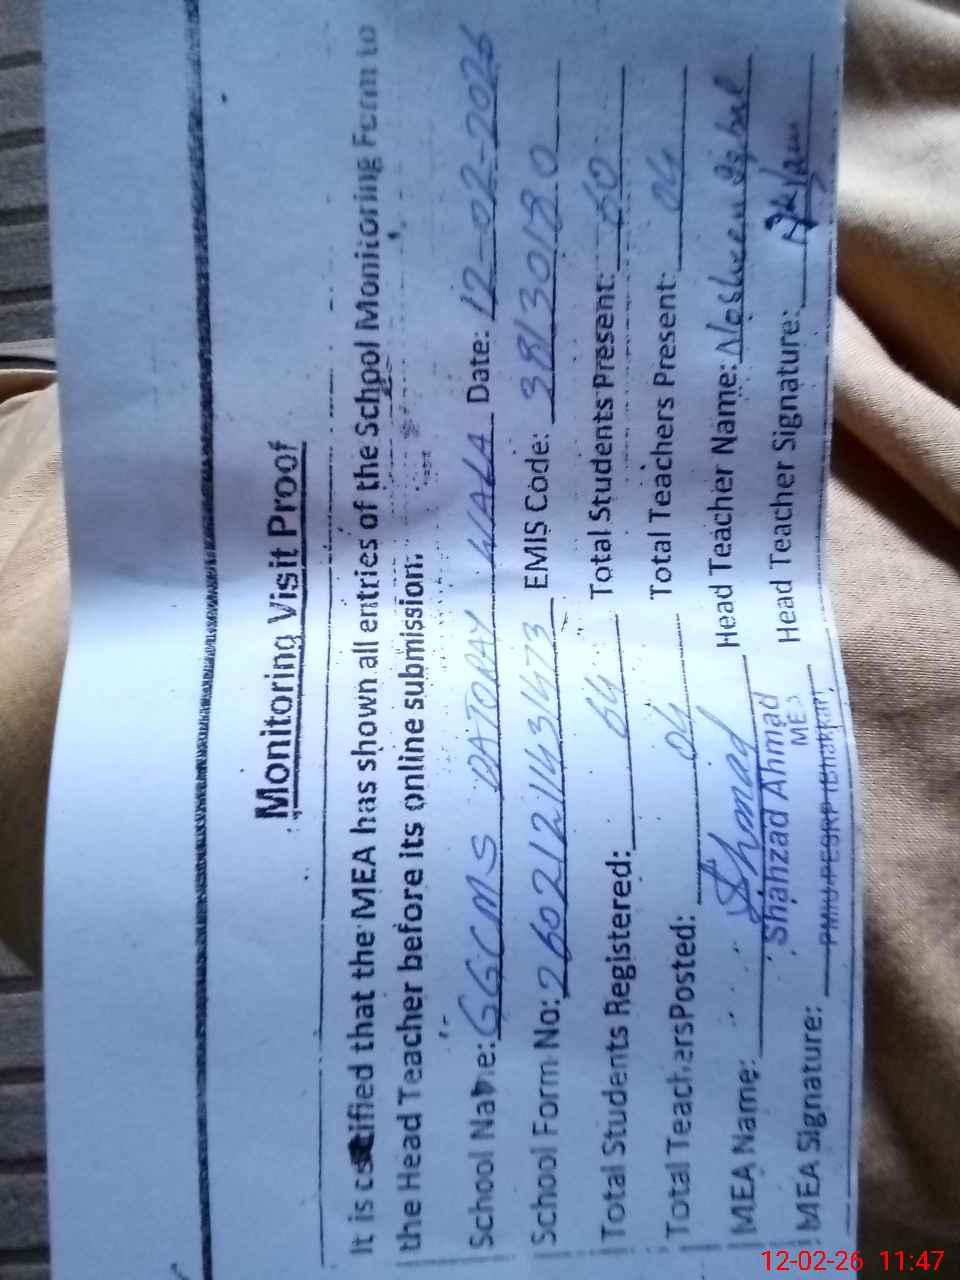 Monitoring Visit Proof
It is certified that the MEA has shown all entries of the School Monitoring Form to
the Head Teacher before its online submission.
School Name: GGCMS DATORAY WALA Date: 12-02-2026
School Form No: 26021211431473 EMIS Code: 38130180
Total Students Registered: 64 Total Students Present: 60
Total Teachers Posted: 04 Total Teachers Present: 04
MEA Name: Ahmad Head Teacher Name: Nosheen Iqbal
Shahzad Ahmad
MEA
MEA Signature: PMIU PESRP (Bhakkar) Head Teacher Signature:
12-02-26 11:47